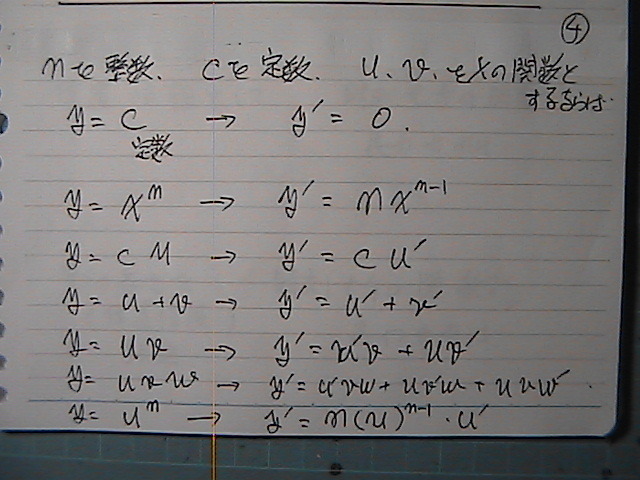 ④
nを整数、 Cを定数、 u、v、をxの関数と
するならば
y = C → y′ = 0.
定数
y = xⁿ → y′ = n xⁿ⁻¹
y = c u → y′ = c u′
y = u + v → y′ = u′ + v′
y = u v → y′ = u′v + uv′
y = u v w → y′ = u′vw + uv′w + uvw′.
y = uⁿ → y′ = n(u)ⁿ⁻¹・u′